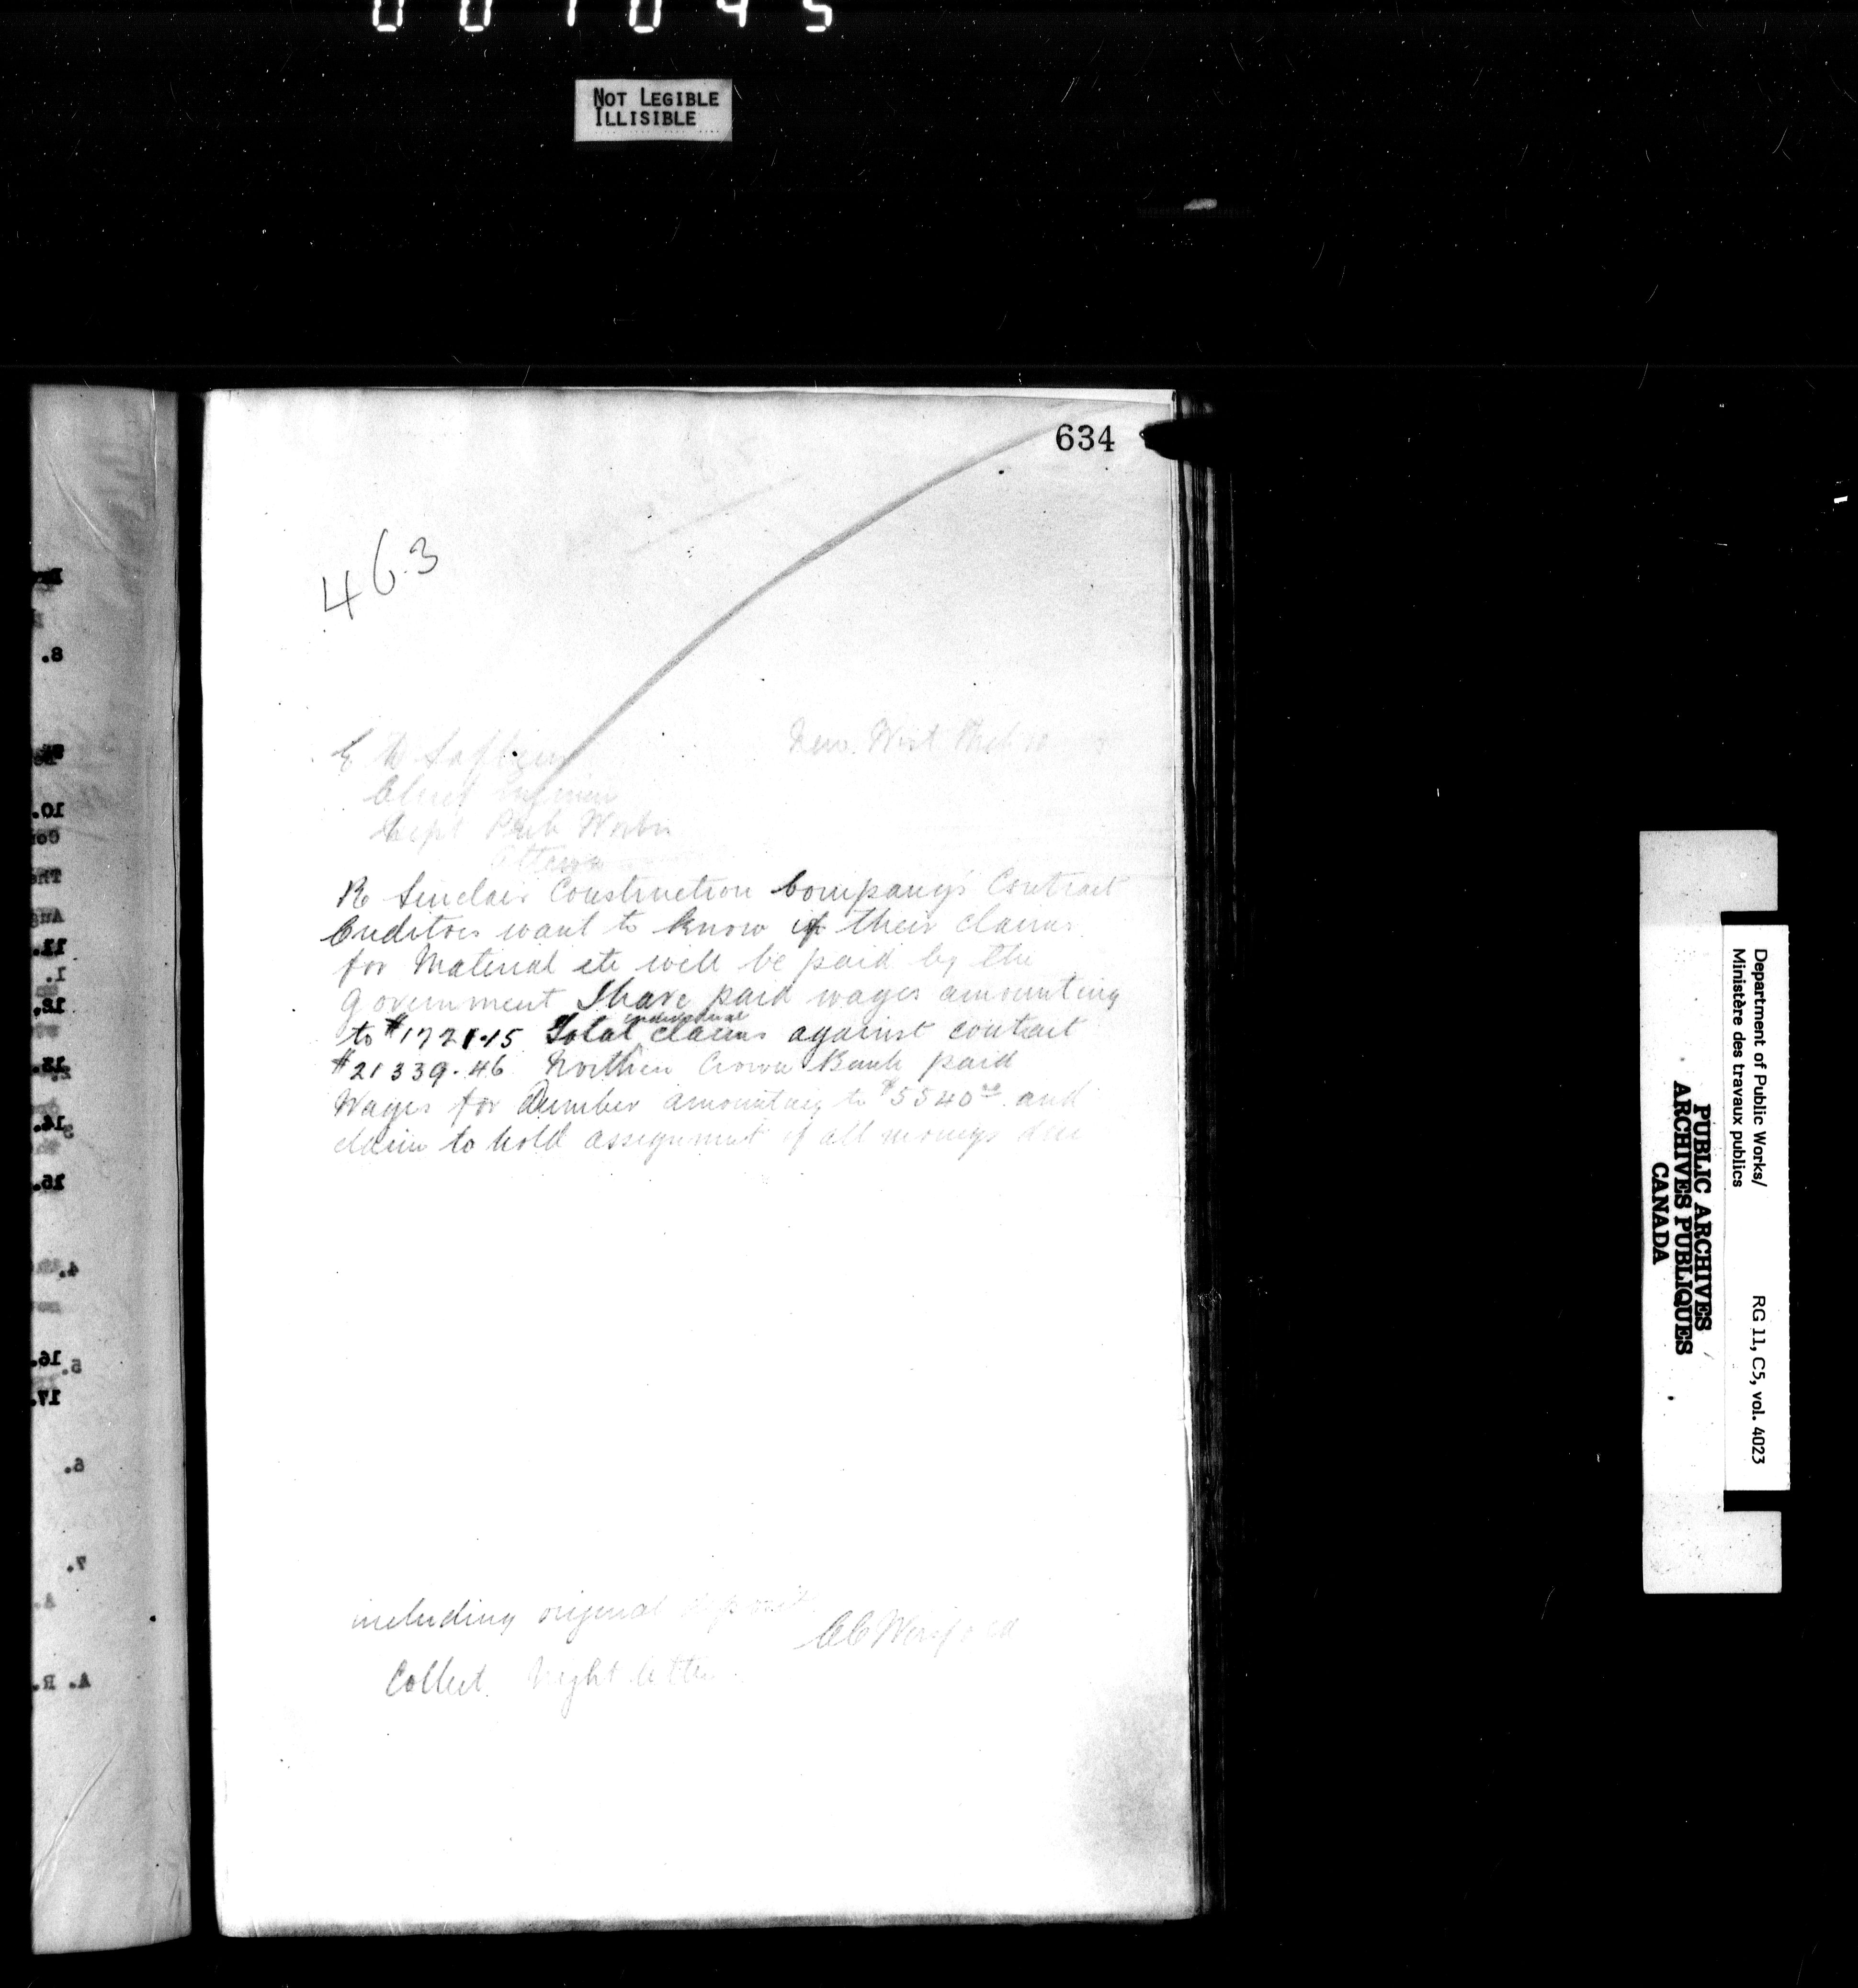 NOT LEGIBLE
ILLISIBLE
634
463
New. West Feb 10
E D Lafleur
Chief Engineer
Dept Pub Works
Ottawa
Re Sinclair Construction Company's Contract
Creditors want to know if their claims
for Material etc will be paid by the
Government I have paid wages amounting
to $1721.15 Total individual claims against contract
$21339.46 Northern Crown Bank paid
Wages for December amounting to $5540 and
claim to hold assignment of all moneys due
including original deposit
Collect. Night letter
Department of Public Works/
Ministère des travaux publics
RG 11, C5, vol. 4023
PUBLIC ARCHIVES
ARCHIVES PUBLIQUES
CANADA